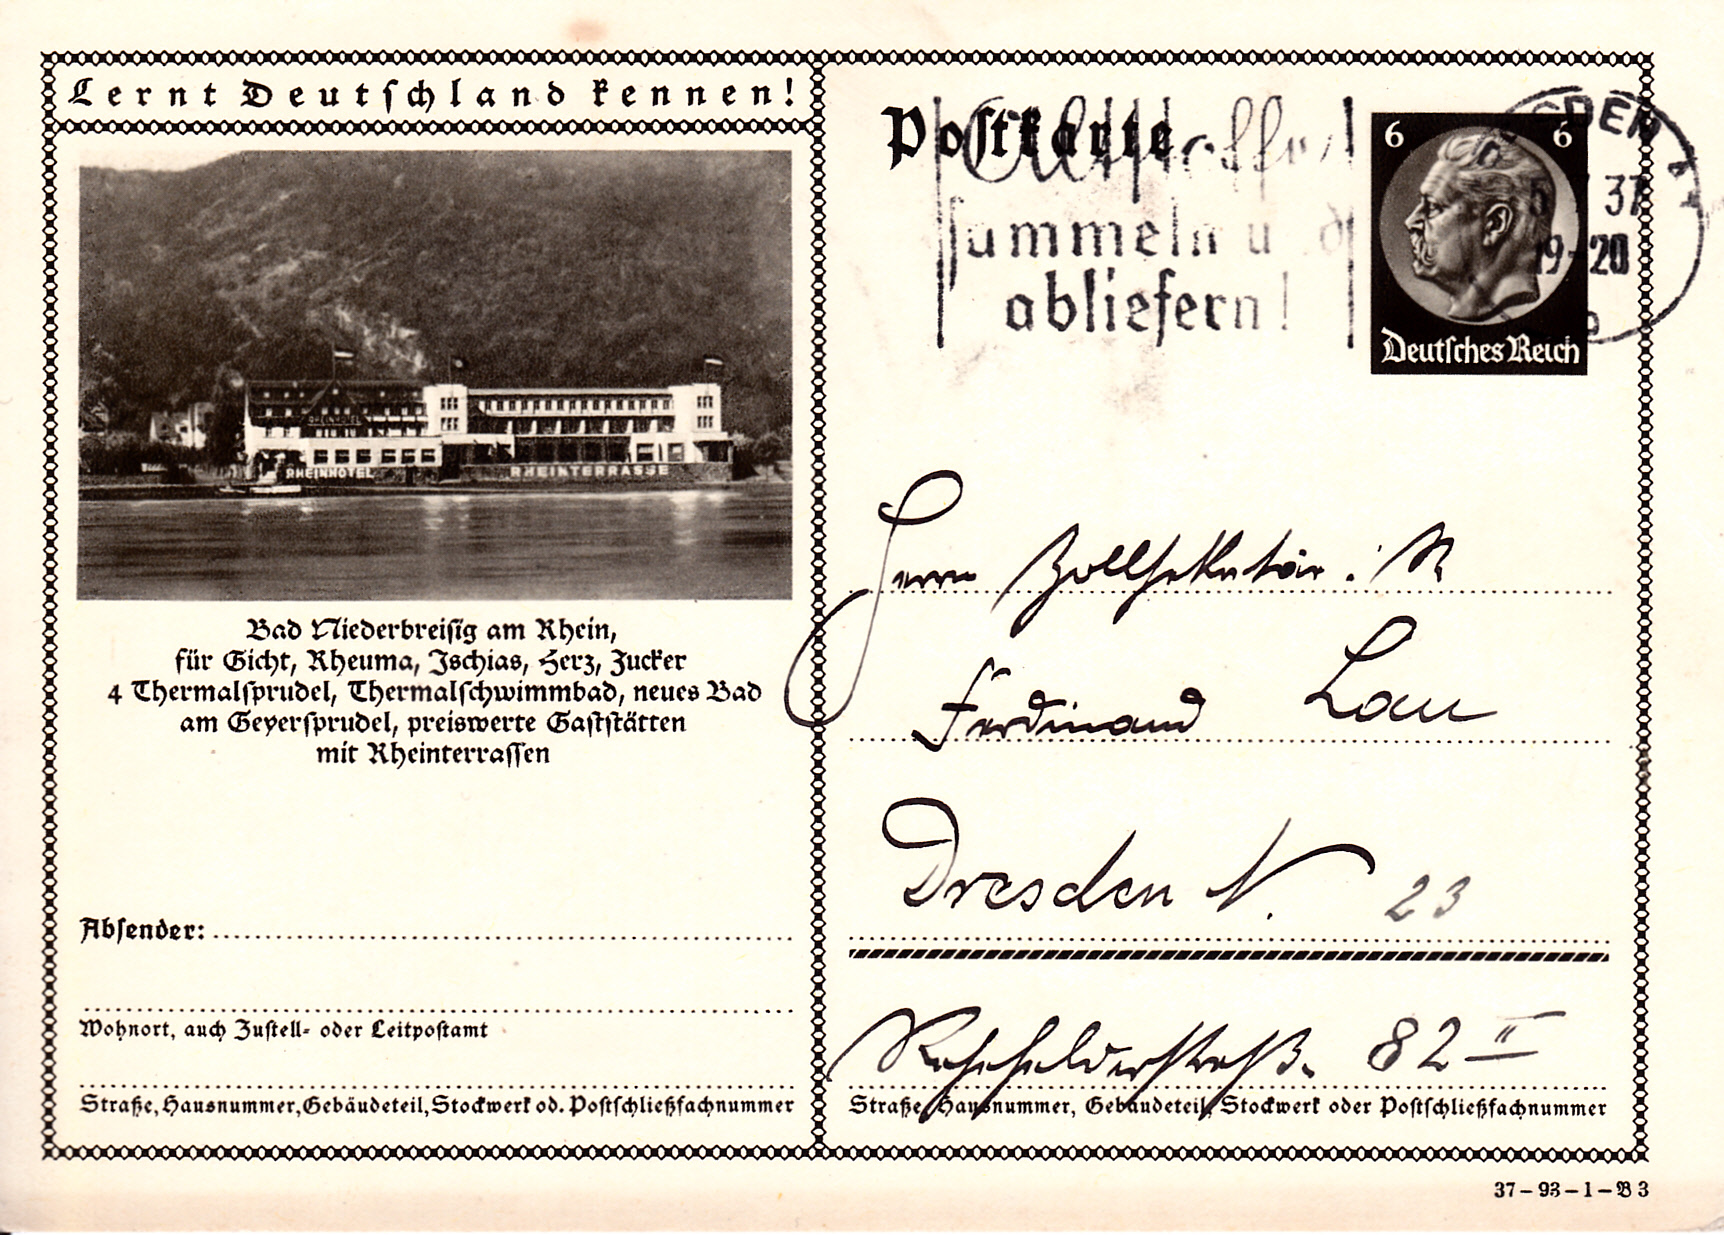 Lernt Deutschland kennen!
RHEINHOTEL
RHEINHOTEL
RHEINTERRASSE
Bad Niederbreisig am Rhein,
für Gicht, Rheuma, Ischias, Herz, Zucker
4 Thermalsprudel, Thermalschwimmbad, neues Bad
am Geyersprudel, preiswerte Gaststätten
mit Rheinterrassen
Absender:
Wohnort, auch Zustell- oder Leitpostamt
Straße, Hausnummer, Gebäudeteil, Stockwerk od. Postschließfachnummer
Postkarte
Altstoffe
sammeln und
abliefern!
6 6
Deutsches Reich
37
19-20
Herrn Zollsekretär i. R
Ferdinand Lau
Dresden N. 23
Rehefelderstraß. 82 II
Straße, Hausnummer, Gebäudeteil, Stockwerk oder Postschließfachnummer
37-93-1-B 3